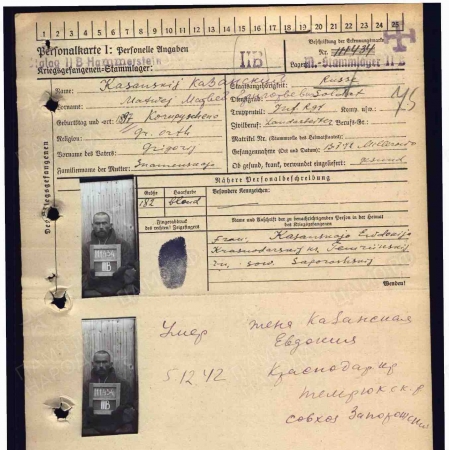 1 2 3 4 5 6 7 8 9 10 11 12 13 14 15 16 17 18 19 20 21 22 23 24 25
Personalkarte I: Personelle Angaben
Stalag II B Hammerstein
II B
Beschriftung der Erkennungsmarke
Nr. 111434
Kriegsgefangenen-Stammlager:
Lager: M.-Stammlager II B
Des Kriegsgefangenen
Name: Kasanskij Казанский
Staatsangehörigkeit: Russe
Vorname: Matwej
Dienstgrad: Soldat
Geburtstag und -ort:
Truppenteil: Inf Rgt Komp. usw.:
Religion: Gr. orth
Zivilberuf: Landarbeiter Berufs-Gr.:
Matrikel Nr. (Stammrolle des Heimatstaates):
Vorname des Vaters: Grigorij
Gefangennahme (Ort und Datum): Millerowo
Familienname der Mutter: Snamenskaja
Ob gesund, krank, verwundet eingeliefert: gesund
Nähere Personalbeschreibung
Größe Haarfarbe Besondere Kennzeichen:
182 blond
Fingerabdruck
des rechten! Zeigefingers
Name und Anschrift der zu benachrichtigenden Person in der Heimat
des Kriegsgefangenen
Frau: Kasanskaja
Krasnodarskij
sow. Saporoshskij
Wenden!
Умер Женя Казанская
Евдокия
5 12 42 Краснодар
темрюкск. р
совхоз